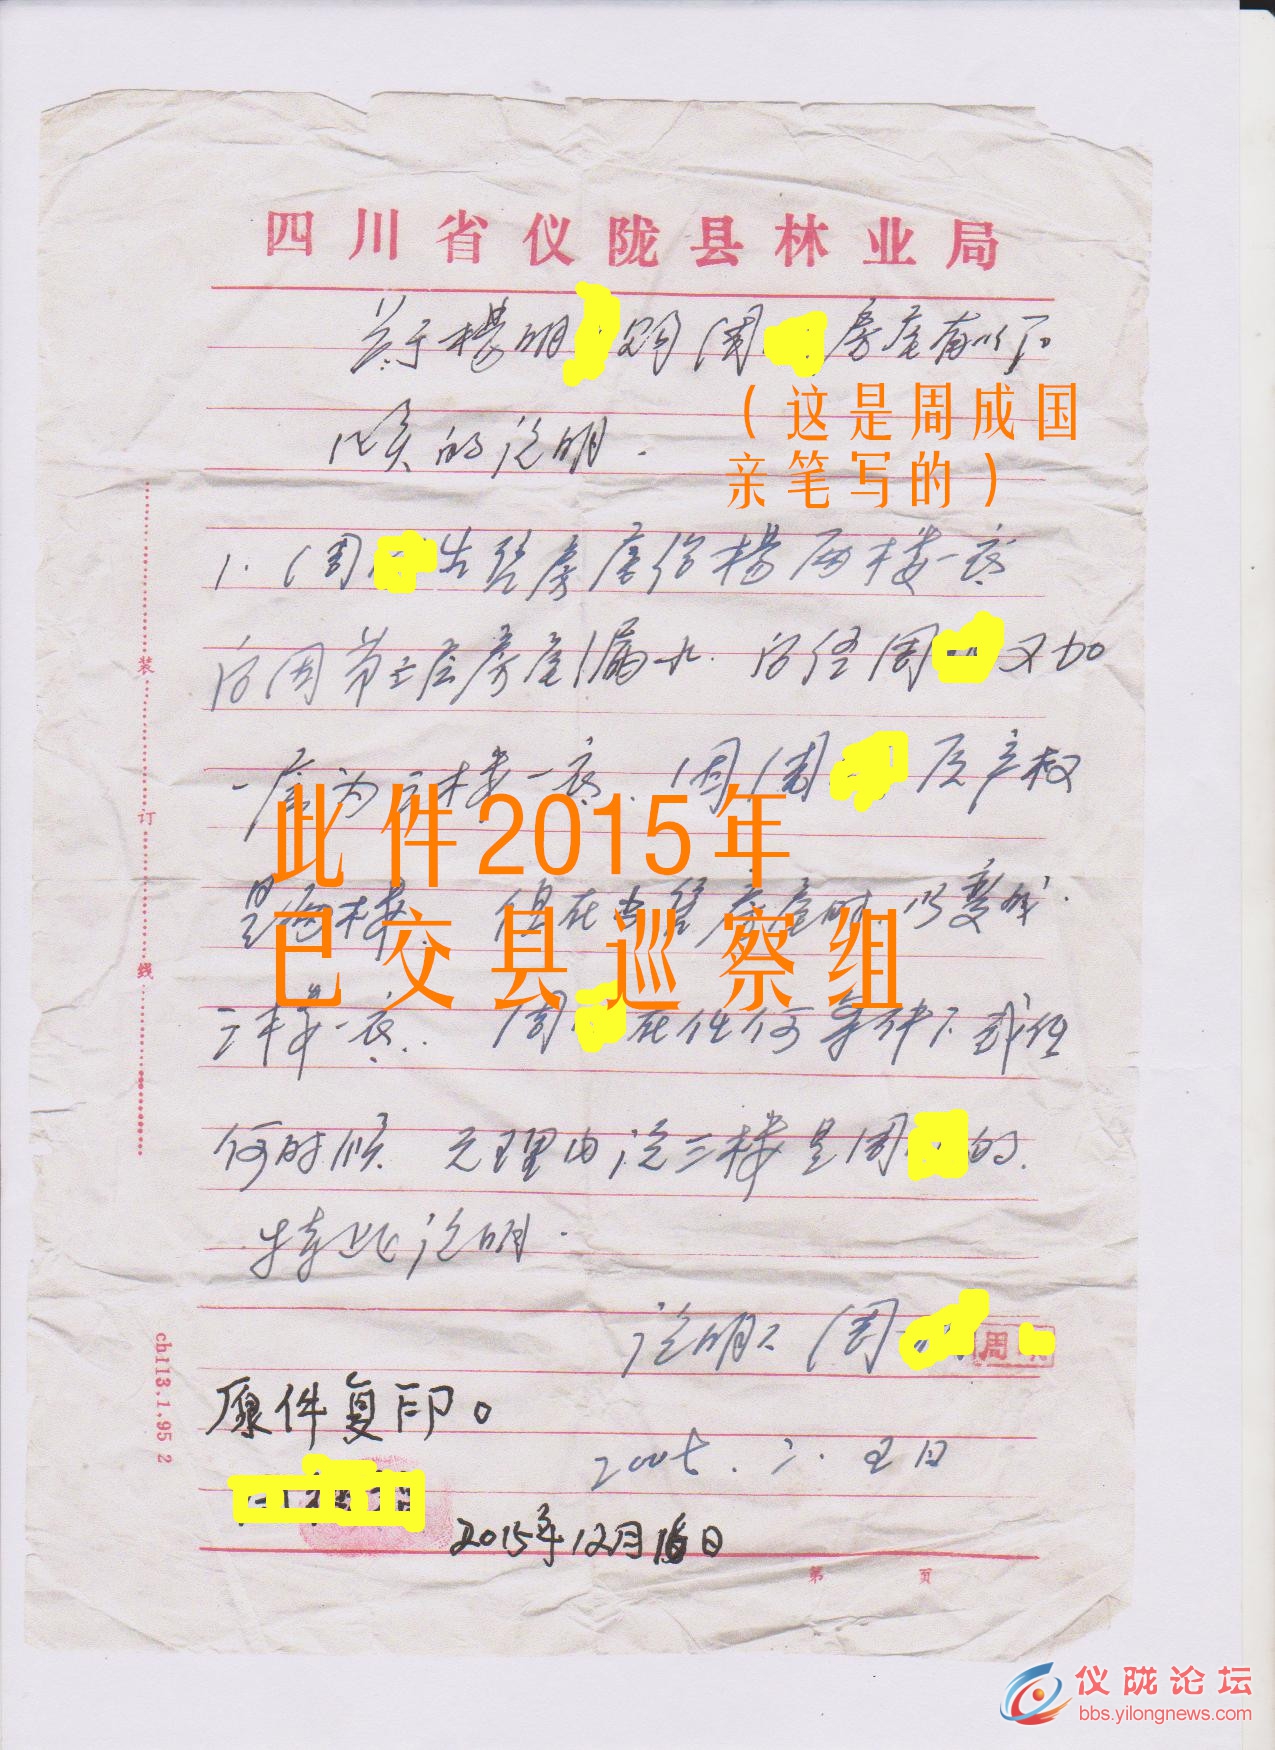 四川省仪陇县林业局
关于杨明 购周 房屋有以下
(这是周成国
几点的说明.
亲笔写的)
1.周 出售房屋给杨 两楼一底
后因第三层房屋漏水.后经周 又加
一层为三楼一底.因周 原产权
此件2015年
是两楼.但在出售房屋时.以变成.
已交县巡察组
三楼一底.周 在任何条件下或任
何时候 无理由说三楼是周 的.
特此说明.
说明人 周
周
原件复印。
2005.二.五日
2015年12月16日
第 页
装
订
线
ch113.1.95 2
仪陇论坛
bbs.yilongnews.com